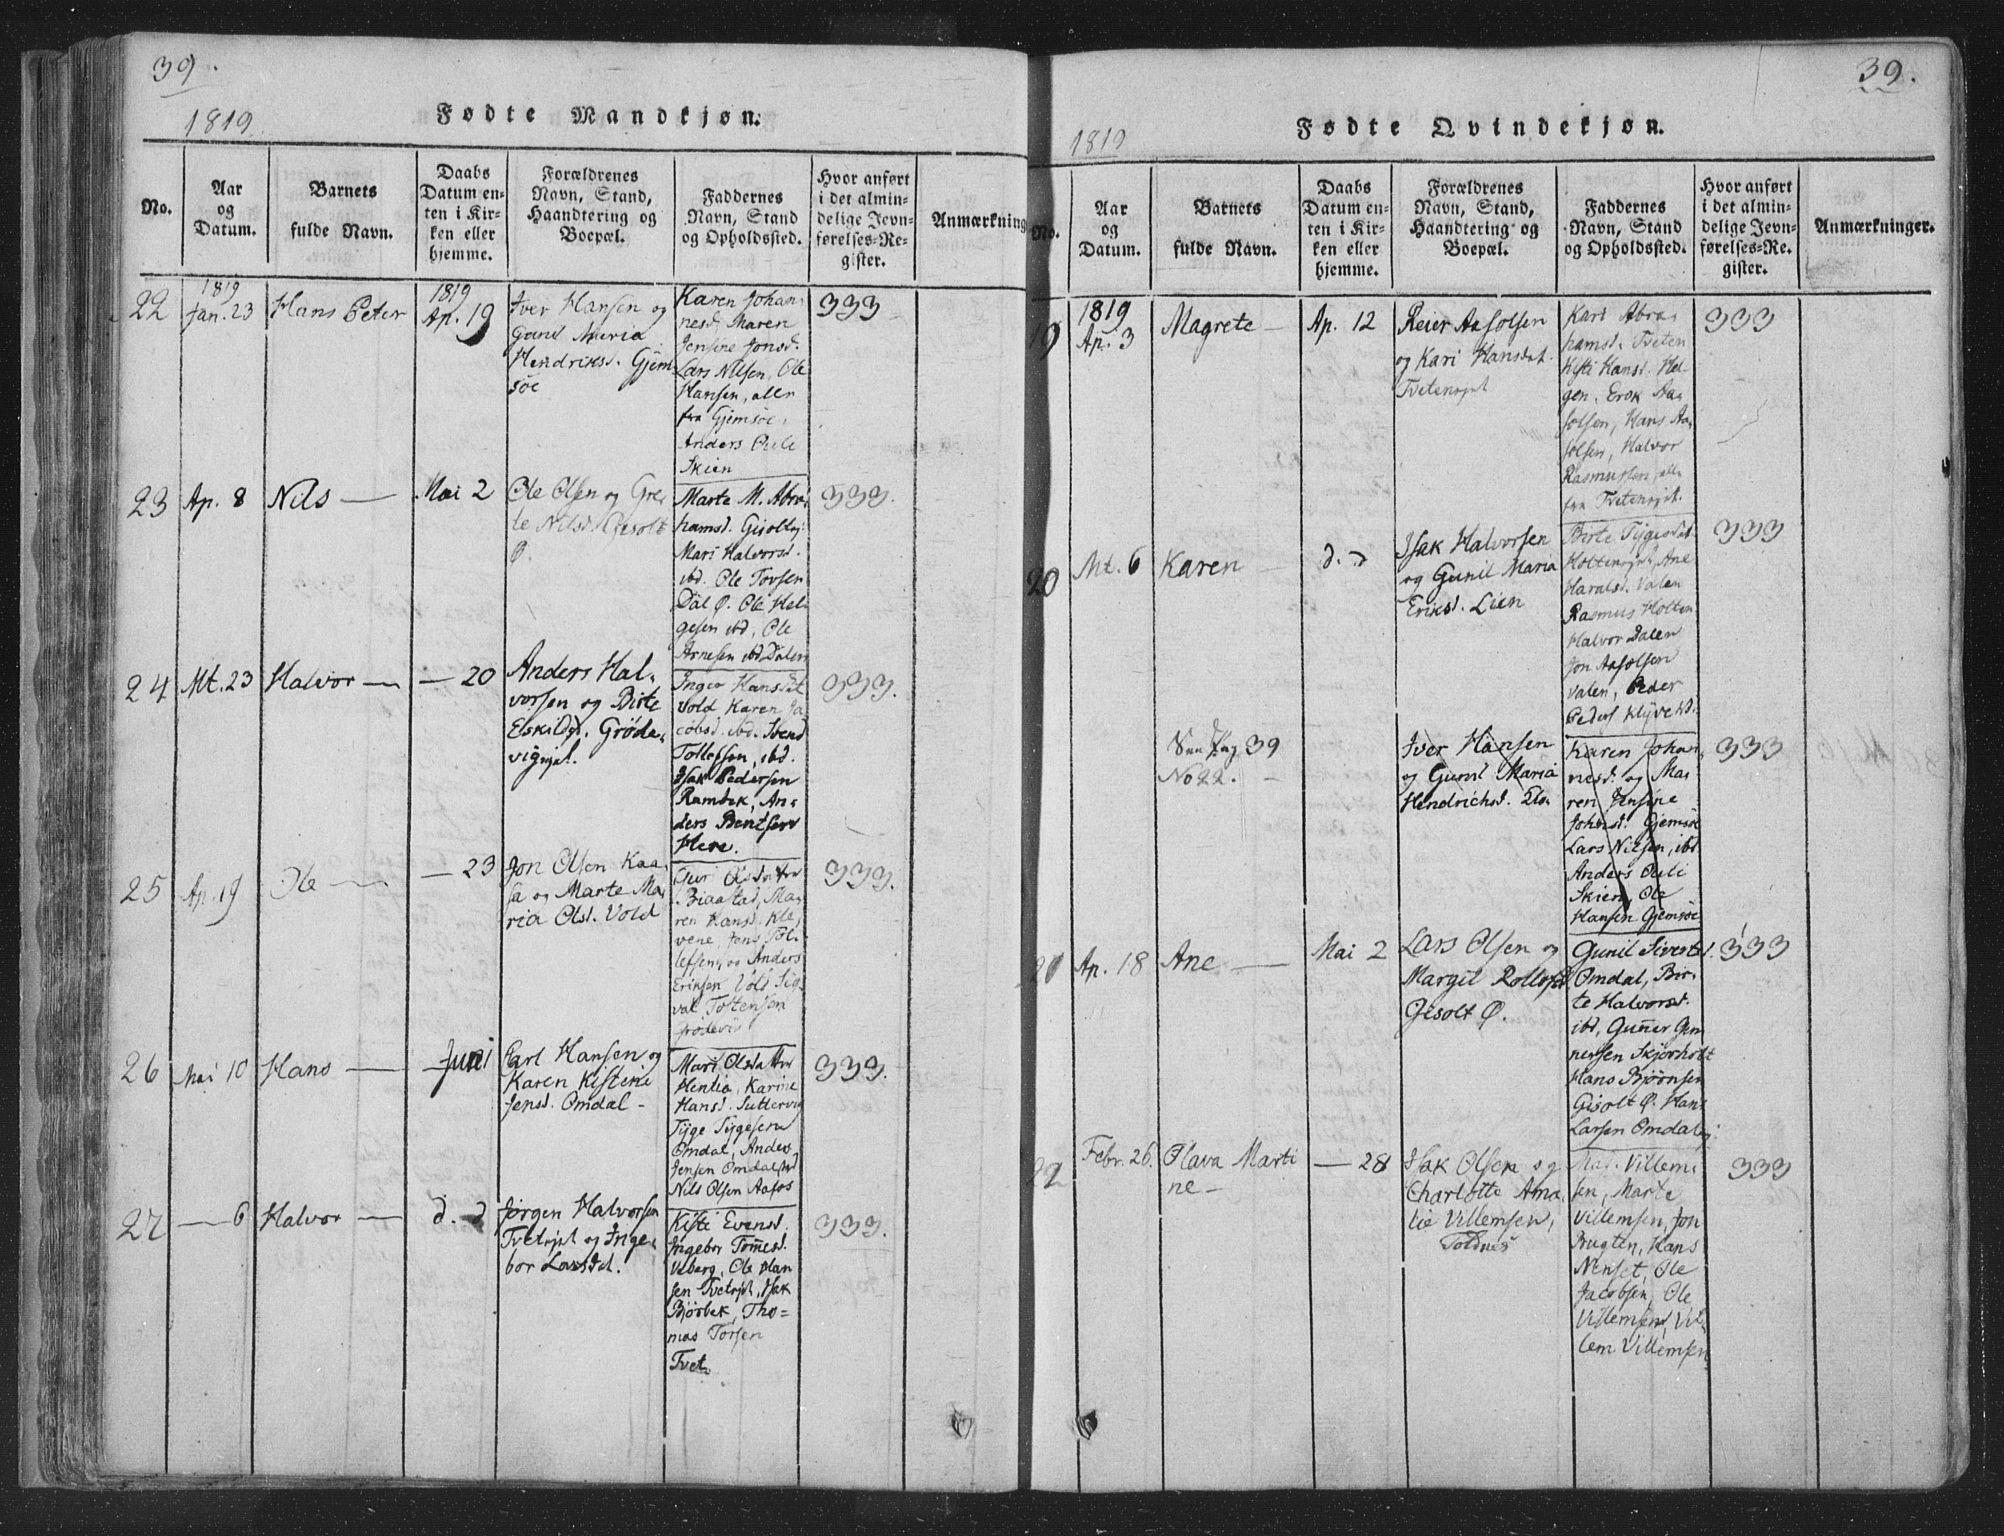 39.
1819
Fødte Mandkjøn.
No.
Aar
og
Datum.
Barnets
fulde Navn.
Daabs
Datum en-
ten i Kir-
ken eller
hjemme.
Forældrenes
Navn, Stand,
Haandtering og
Boepæl.
Faddernes
Navn, Stand
og Opholdssted.
Hvor anført
i det almin-
delige Jevn-
førelses-Re-
gister.
Anmærkning
22
1819
Jan. 23
Hans Peter
1819
Ap. 19
Iver Hansen og
Gunil Maria
Hendriksd. Gjem-
søe
Karen Johan-
nesd, Maren
Jensine Jonsd.
Lars Nilsen, Ole
Hansen, alle
fra Gjemsøe,
Anders
Skien
333
23
Ap. 8
Nils
Mai 2
Ole Olsen og Gre-
te Nilsd. Gisolt
Ø.
Marte M. Abra-
hamsd. Gisoltej.
Mari Halvorsd.
ibd. Ole Torsen
Dal Ø. Ole Hel-
gesen ibd, Ole
Arnesen ibd. Dalen
333.
24
Mt. 23
Halvor
20
Anders Hal-
vorsen og Birte
Eskildsd. Grøde-
vigejet.
Inger Hansdat
Vold Karen Ja-
cobsd. ibd. Svend
Tollefsen, ibd.
Isak Pedersen
Rambek, An-
ders Bentsen
Here.
333.
25
Ap. 19
Ole
23
Jon Olsen Kaa-
sa og Marte Ma-
ria Olsd. Vold
Biaastad, Ma-
ren Hansd. Kle-
vene, Jens Tol-
lefsen, og Anders
Eriksen Vold
333.
26
Mai 10
Hans
Juni
Carl Hansen og
Karen Kistine
Jensd. Omdal
Mari Olsdatter
Hentia, Karine
Hansd. Suttervig
Tyge Tygesen
Omdal, Anders
Jensen Omdalsejd
Nils Olsen Aafos
333.
27
6
Halvor
d. d
Jørgen Halvorsen
Tvetejet og Inge-
bor Larsdat.
Kisti Evensd.
Ingebor Tomesd.
Ueberg, Ole Han-
sen Tvetejet, Isak
Bjørbek, Tho-
mas Torsen
Tvet
333.
39.
1819
Fødte Qvindekjøn.
No.
Aar
og
Datum.
Barnets
fulde Navn.
Daabs
Datum en-
ten i Kir-
ken eller
hjemme.
Forældrenes
Navn, Stand,
Haandtering og
Boepæl.
Faddernes
Navn, Stand
og Opholdssted.
Hvor anført
i det almin-
delige Jevn-
førelses-Re-
gister.
Anmærkninger.
19
1819
Ap. 3
Magrete
Ap. 12
Reier Aasolsen
og Kari Hansdat.
Tvetenejet
Kari Abra-
hamsd. Tveten
Kisti Hansd. Hel-
gen, Erek Aa-
solsen, Hans Aa-
solsen, Halvor
Rasmussen, alle
fra Tvetenejet.
333
20
Mt. 6
Karen
d. d
Isak Halvorsen
og Gunil Maria
Eriksd. Lien
Birte Tygesdat
Holtenejet, Ane
Haralsd. Valen
Rasmus Holten
Halvor Dalen
Jon Aasolsen
Valen, Peder
Peders Klyve ibd.
333
See Pag 39
No 22.
Iver Hansen
og Gunil Maria
Hendrichsd.
Karen Johan-
nesd. og Ma-
ren Jensine
Johnsd. Gjemsøe
Lars Nilsen, ibd
Anders
Skien, Ole
Hansen Gjemsøe
333
21
Ap. 18
Ane
Mai 2
Lars Olsen og
Margit Rollefsd
Gisolt Ø.
Gunil Sivertsd.
Omdal, Bir-
te Halvorsd.
ibd, Guner Gun-
nersen Skjørholt
Hans Bjørnsen
Gisolt Ø. Hans
Larsen Omdalej.
333
22
Febr. 26.
Olava Marti
ne
28
Isak Olsen og
Charlotte Ama-
lie Villemsen,
Toldnes
Villem-
sen, Marte
Villemsen, Jon
Brugten, Hans
Nenset, Ole
Jacobsen, Ole
Villemsen, Vil-
lem Villemsen
333